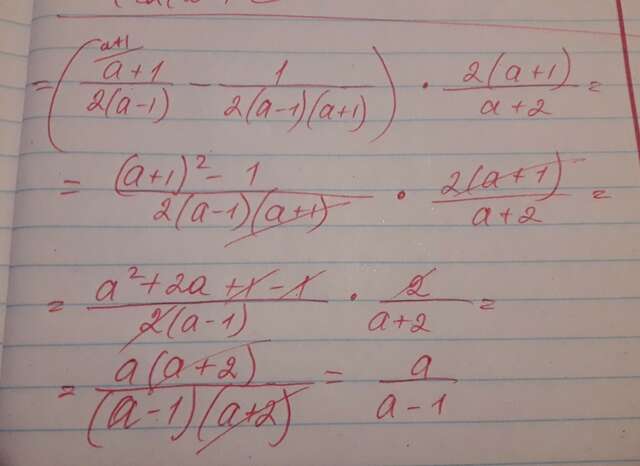 = ( a+1 / 2(a-1) - 1 / 2(a-1)(a+1) ) · 2(a+1) / a+2 =
= (a+1)² - 1 / 2(a-1)(a+1) · 2(a+1) / a+2 =
= a² + 2a + 1 - 1 / 2(a-1) · 2 / a+2 =
= a(a+2) / (a-1)(a+2) = a / a-1